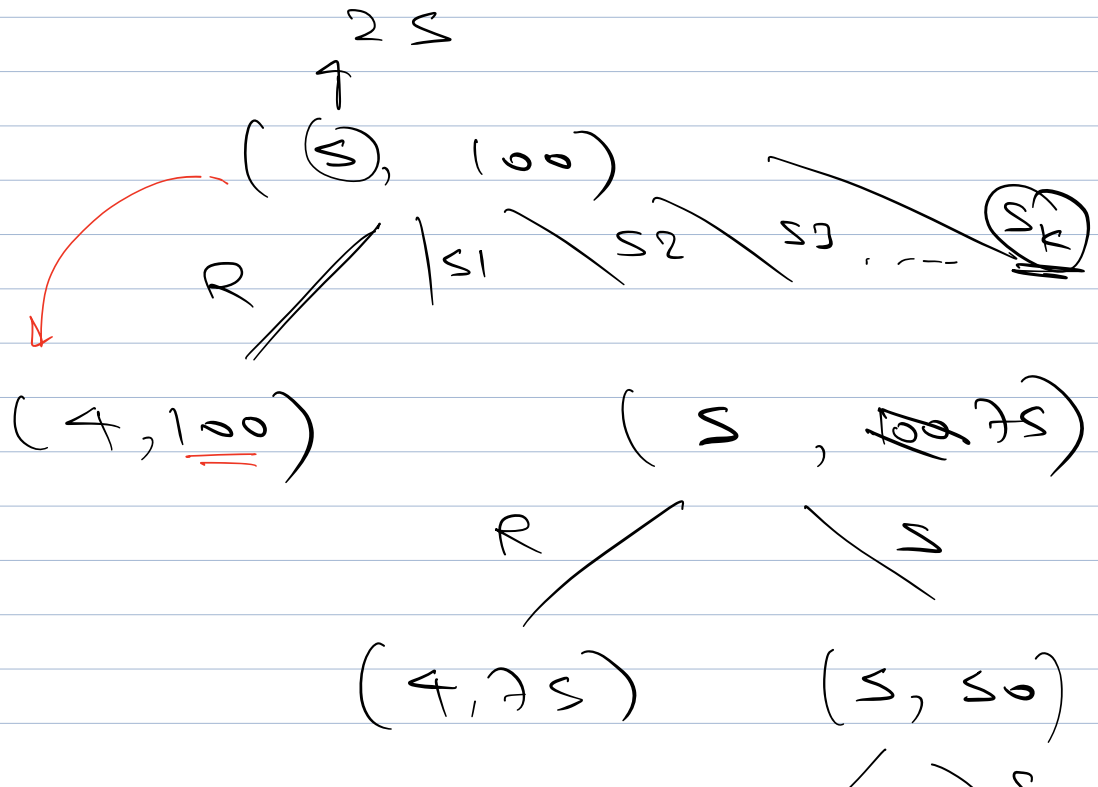 25
(5, 100)
R S1 S2 S3 .---- SK
(4, 100) (5, 100 75)
R S
(4, 75) (5, 50)
S